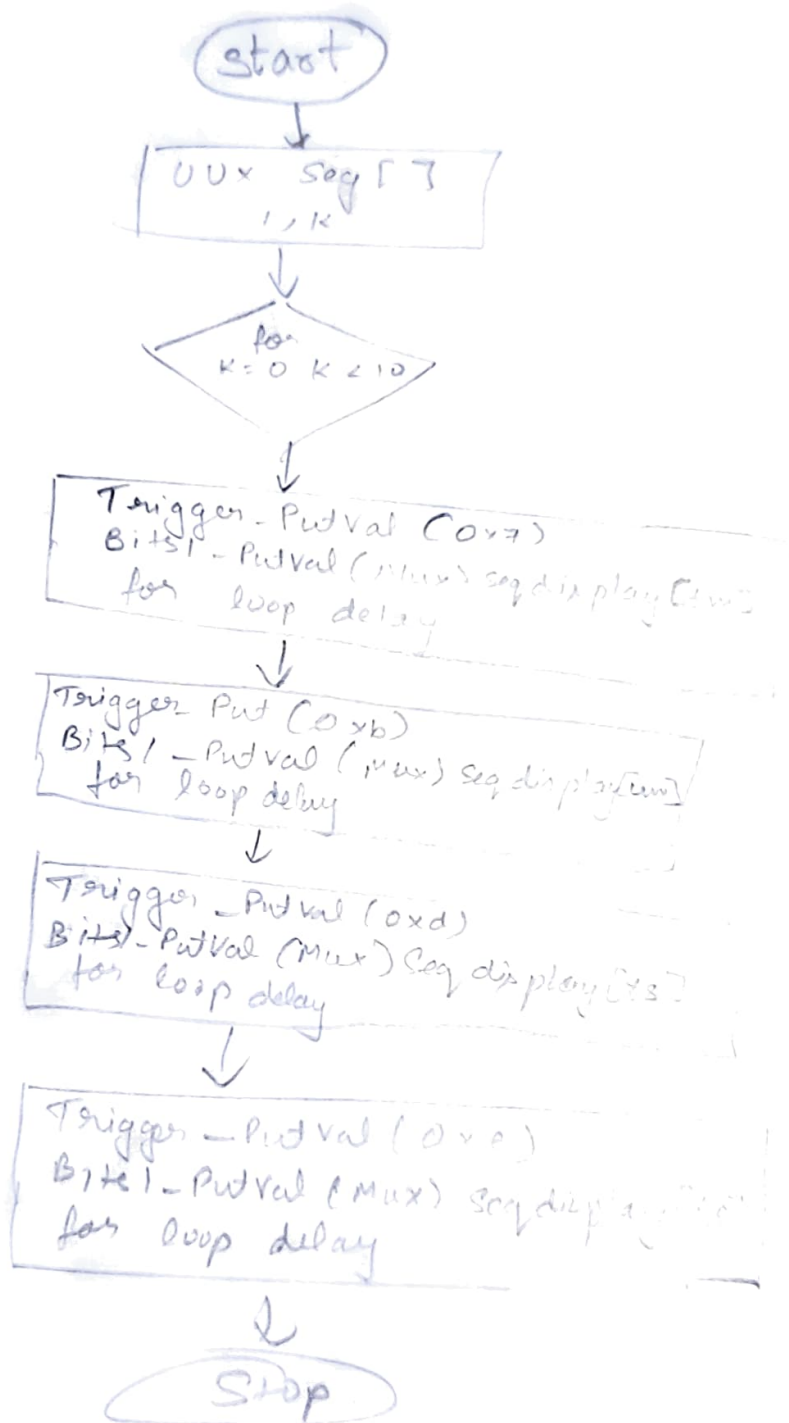 Start
UUx Seg[ ]
i, k
for
K=0 K<10
Trigger_PutVal (0x7)
Bits1_PutVal (Mux) seqdisplay[
for loop delay
Trigger_Put (0xb)
Bits1_PutVal (Mux) seqdisplay[um]
for loop delay
Trigger_PutVal (0xd)
Bits1_PutVal (Mux) Seqdisplay[
for loop delay
Trigger_PutVal (0xe)
Bits1_PutVal (Mux) Seqdisplay
for loop delay
Stop